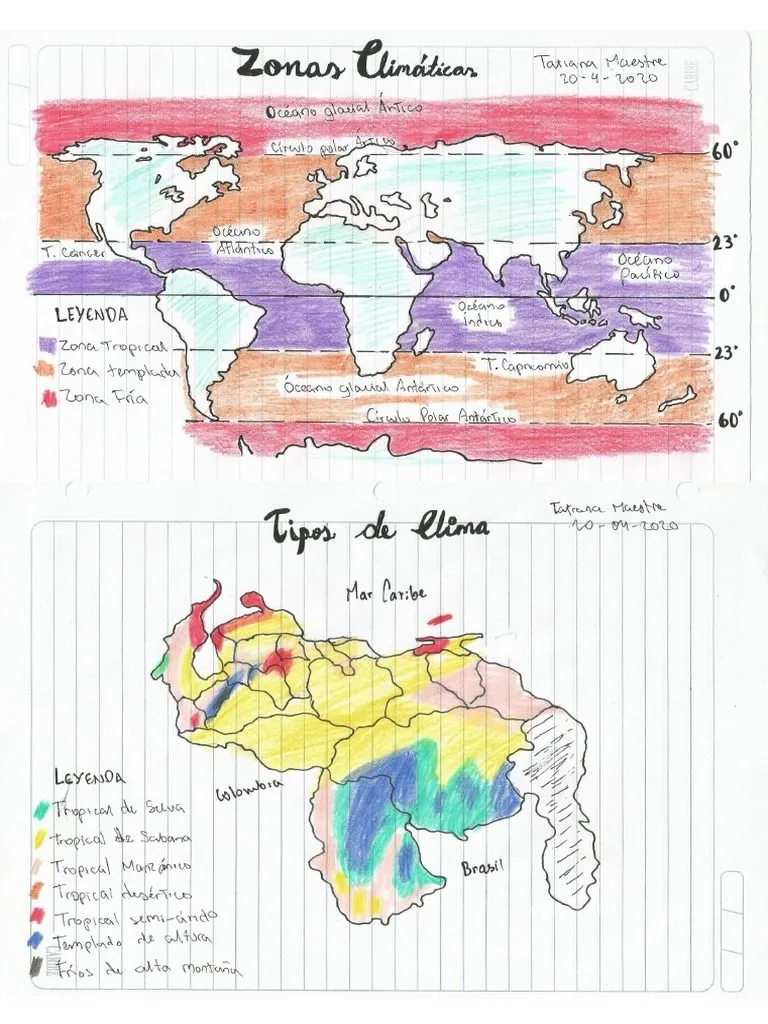 Zonas Climáticas
Tatiana Maestre
20-4-2020
CARIBE
Océano glacial Ártico
Círculo polar Ártico
60°
Océano
Atlántico
23°
T. Cáncer
Océano
Pacífico
0°
Océano
índico
LEYENDA
Zona Tropical
Zona templada
Zona Fría
23°
T. Capricornio
Óceano glacial Antártico
Círculo Polar Antártico
60°
Tipos de Clima
Tatiana Maestre
20-04-2020
Mar Caribe
Colombia
Brasil
LEYENDA
Tropical de Selva
tropical de Sabana
Tropical Monzónico
Tropical desértico
Tropical semi-árido
Templado de altura
Fríos de alta montaña